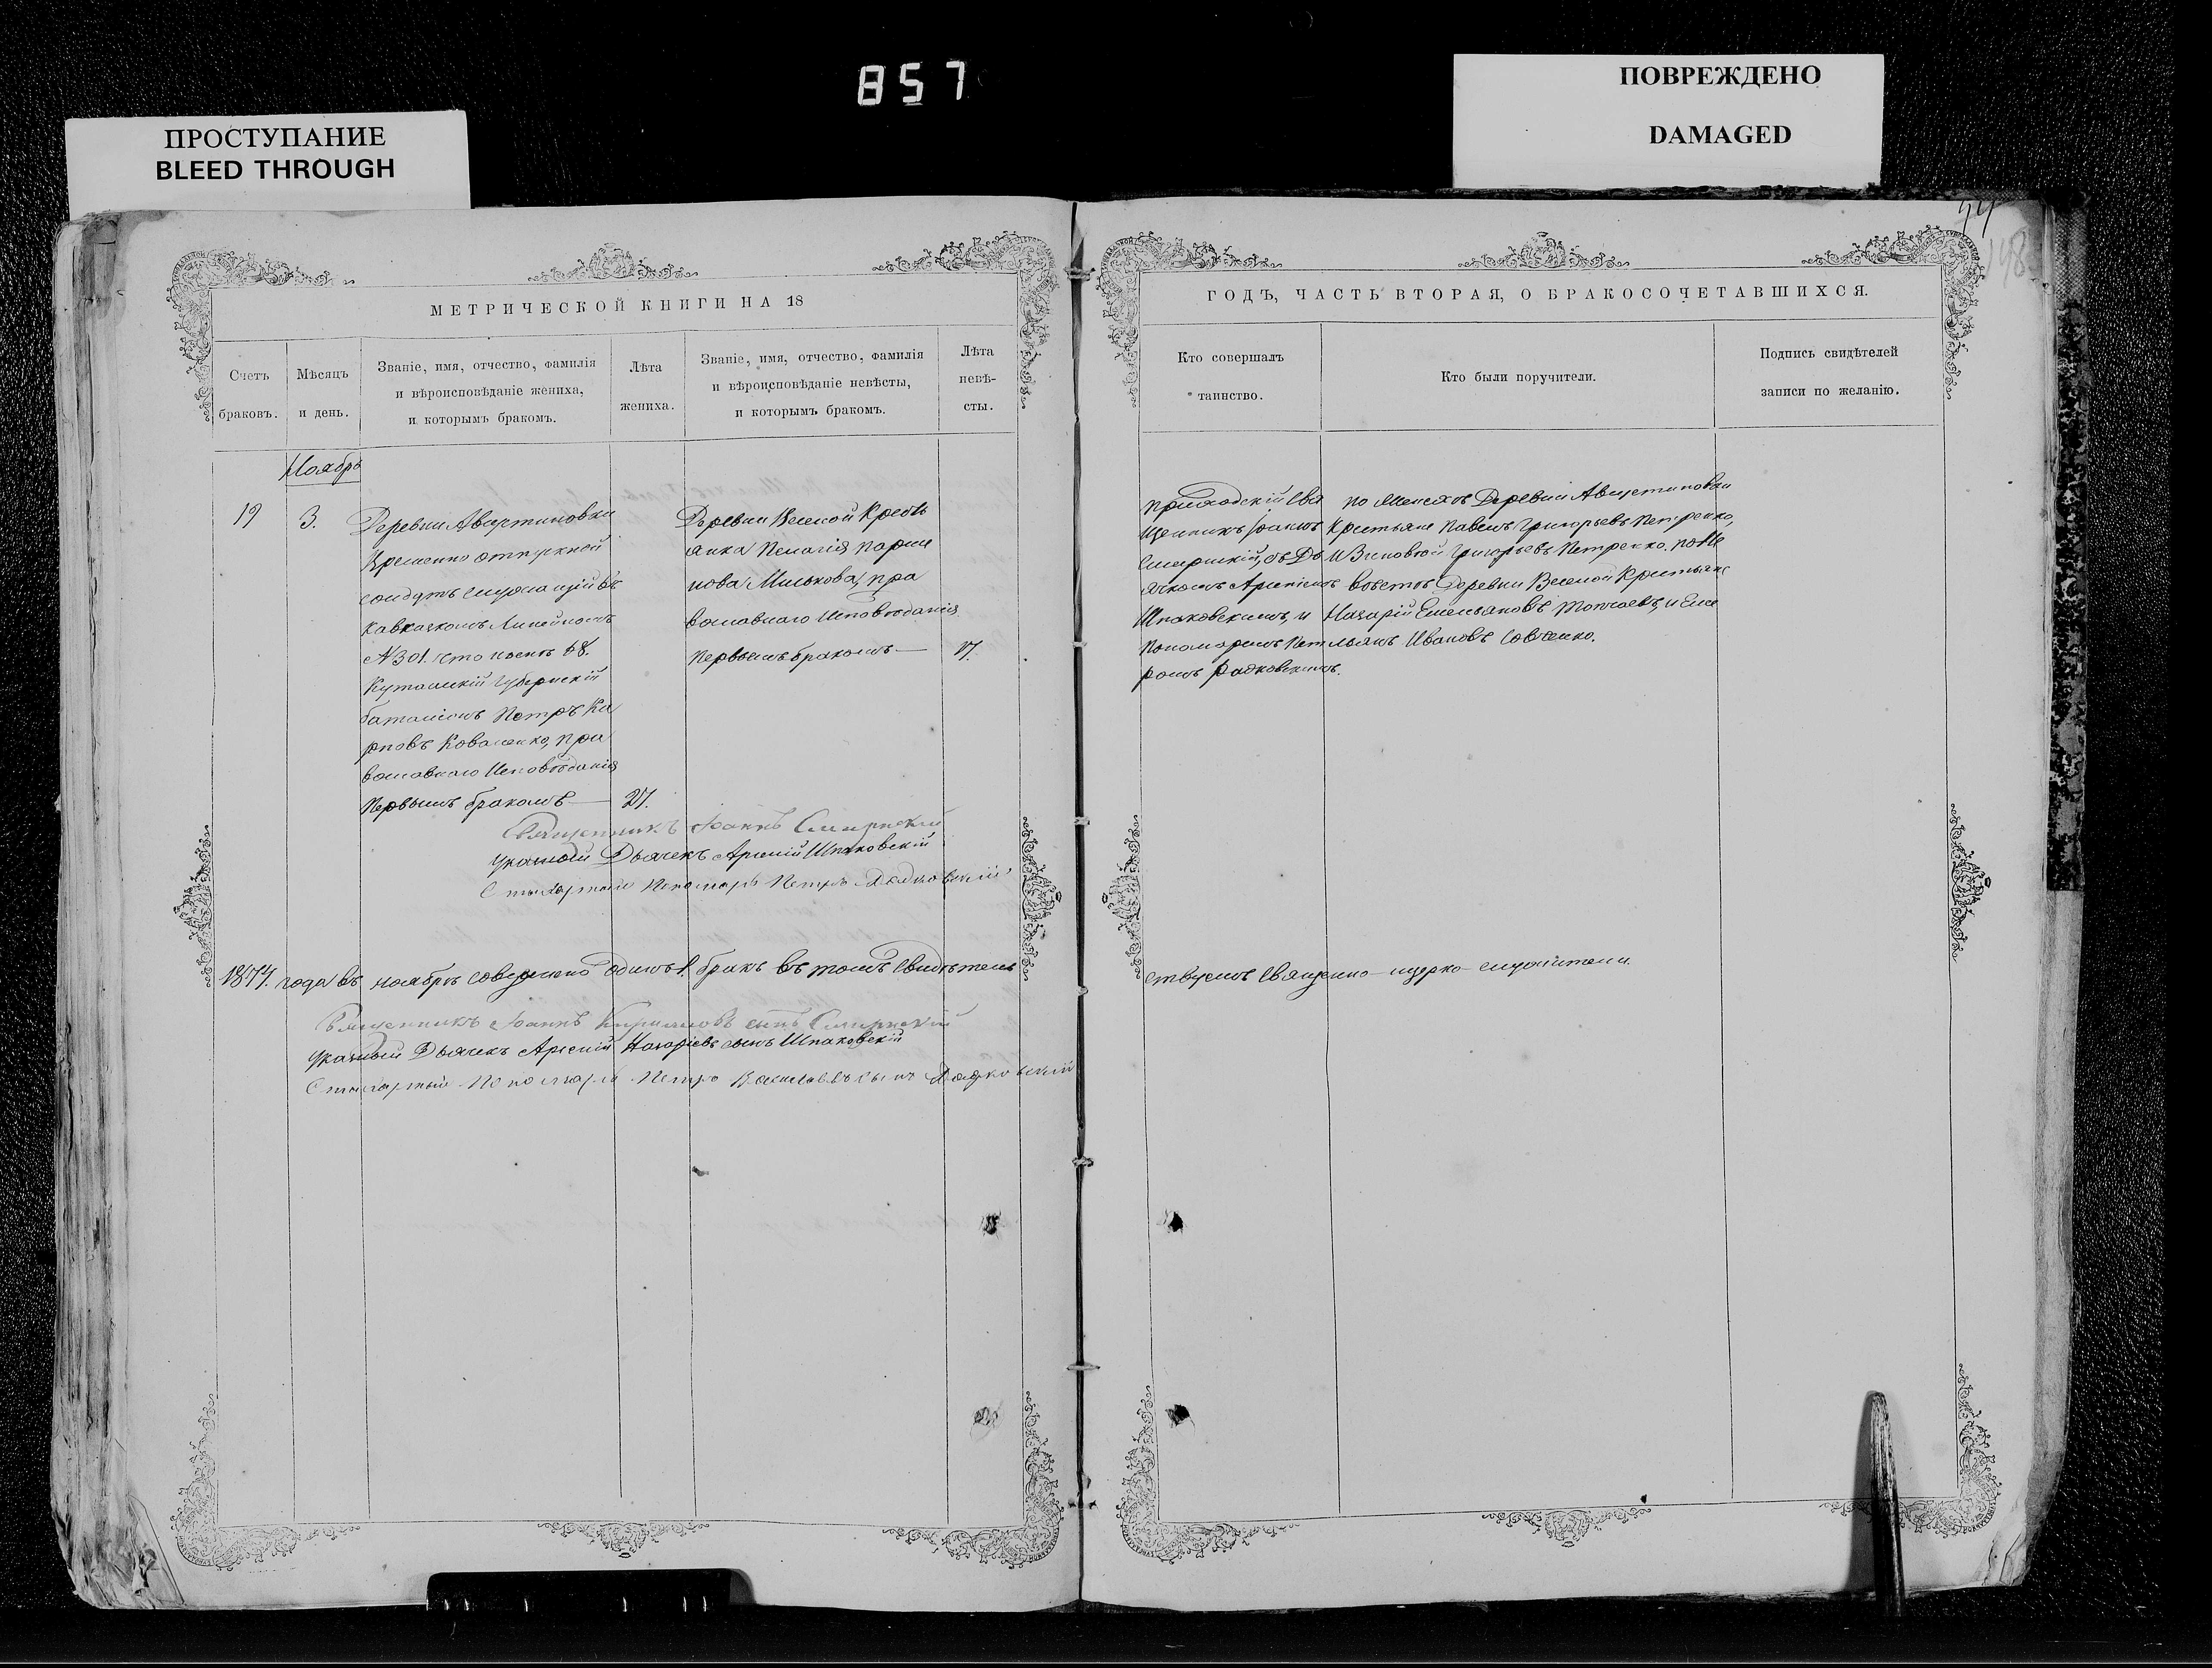 857
ПРОСТУПАНИЕ
BLEED THROUGH
ПОВРЕЖДЕНО
DAMAGED
МЕТРИЧЕСКОЙ КНИГИ НА 18
Счетъ браковъ.
Мѣсяцъ и день.
Званіе, имя, отчество, фамилія
и вѣроисповѣданіе жениха,
и которымъ бракомъ.
Лѣта жениха.
Званіе, имя, отчество, фамилія
и вѣроисповѣданіе невѣсты,
и которымъ бракомъ.
Лѣта невѣ-
сты.
Ноябрь
19
3.
Деревни
Временно отпускной
Кавказкомъ Линейномъ
Кутаискій Губернскій
баталіонъ Петръ Ка
рповъ Коваленко, пра
вославнаго Исповѣданія
Первымъ бракомъ — 27.
Деревни Веселой Кресть
янка Пелагія
нова Милькова, пра
вославнаго Исповѣданія
Первымъ бракомъ — 17.
Священникъ Іоаннъ Смирнскій
Указный Дьячекъ Арсеній Шпаковскій
Стихарный Пономарь Петръ
1874 года въ ноябрѣ совершено одинъ 1. бракъ въ томъ свидѣтель
Священникъ Іоаннъ сынъ Смирнскій
Указный Дьячекъ Арсеній Назаріевъ сынъ Шпаковскій
Стихарный Пономарь Петръ сынъ
ГОДЪ, ЧАСТЬ ВТОРАЯ, О БРАКОСОЧЕТАВШИХСЯ.
Кто совершалъ
таинство.
Кто были поручители.
Подпись свидѣтелей
записи по желанію.
148
Приходскій Свя
щенникъ Іоаннъ
Смирнскій, съ Дь
ячкомъ Арсеніемъ
Шпаковскимъ, и
Пономаремъ Пет
ромъ
по женихѣ Деревни
Крестьяне Павелъ Григорьевъ Петренко,
и Зиновій Григорьевъ Петренко. по не
вѣстѣ Деревни Веселой Крестьяне
Назарій Емельяновъ и Еме
льянъ Ивановъ Савченко.
ствуемъ Священно-церко-служители.